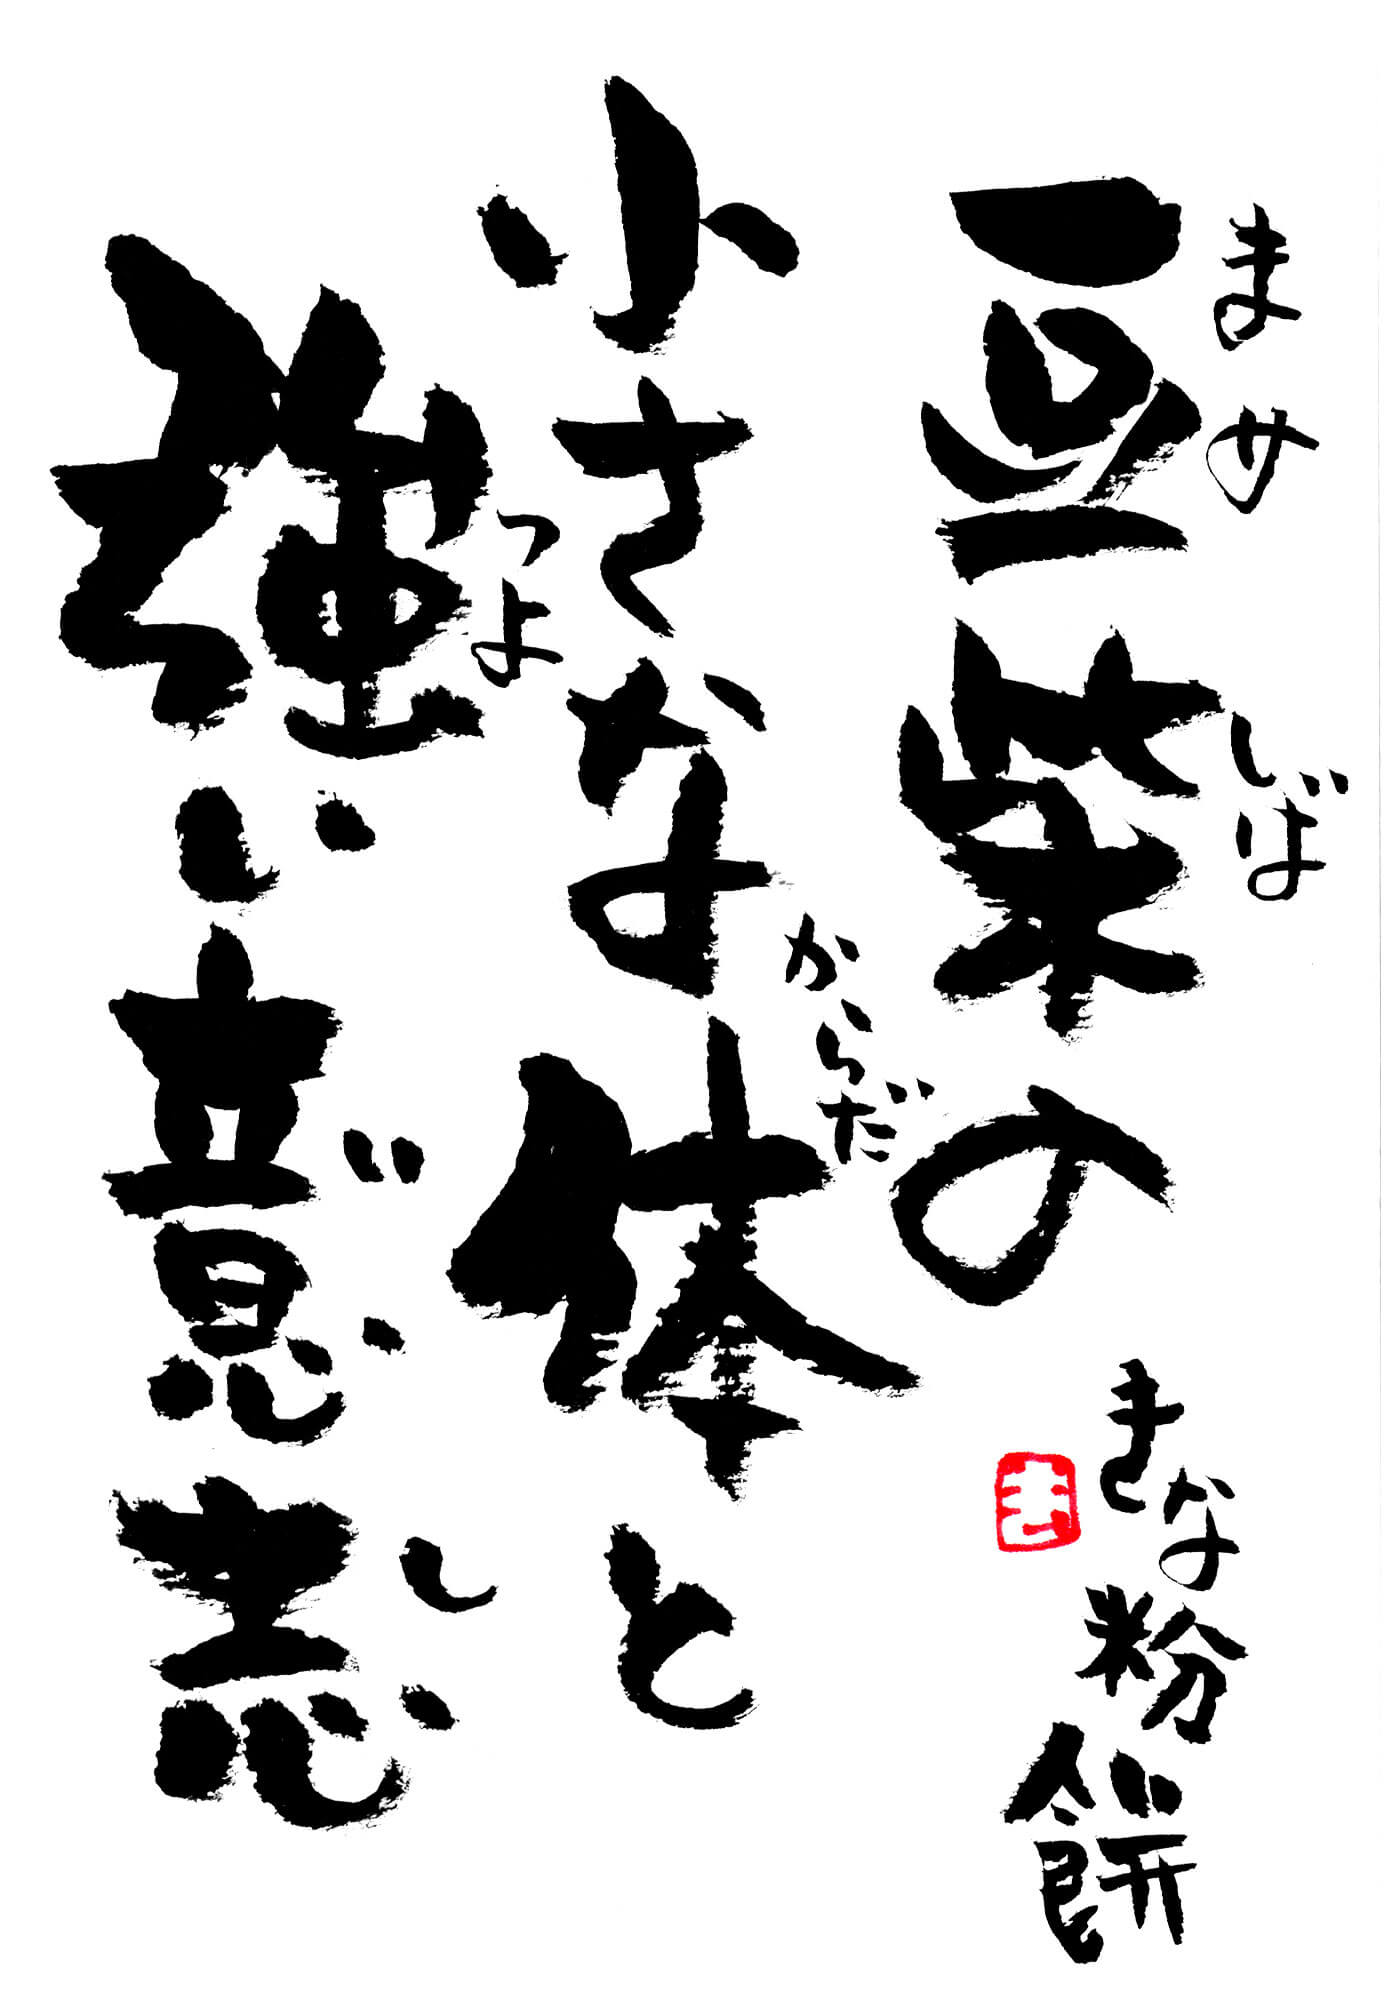 まめしば
豆柴の
きな粉餅
き
からだ
小さな体と
つよいし
強い意志